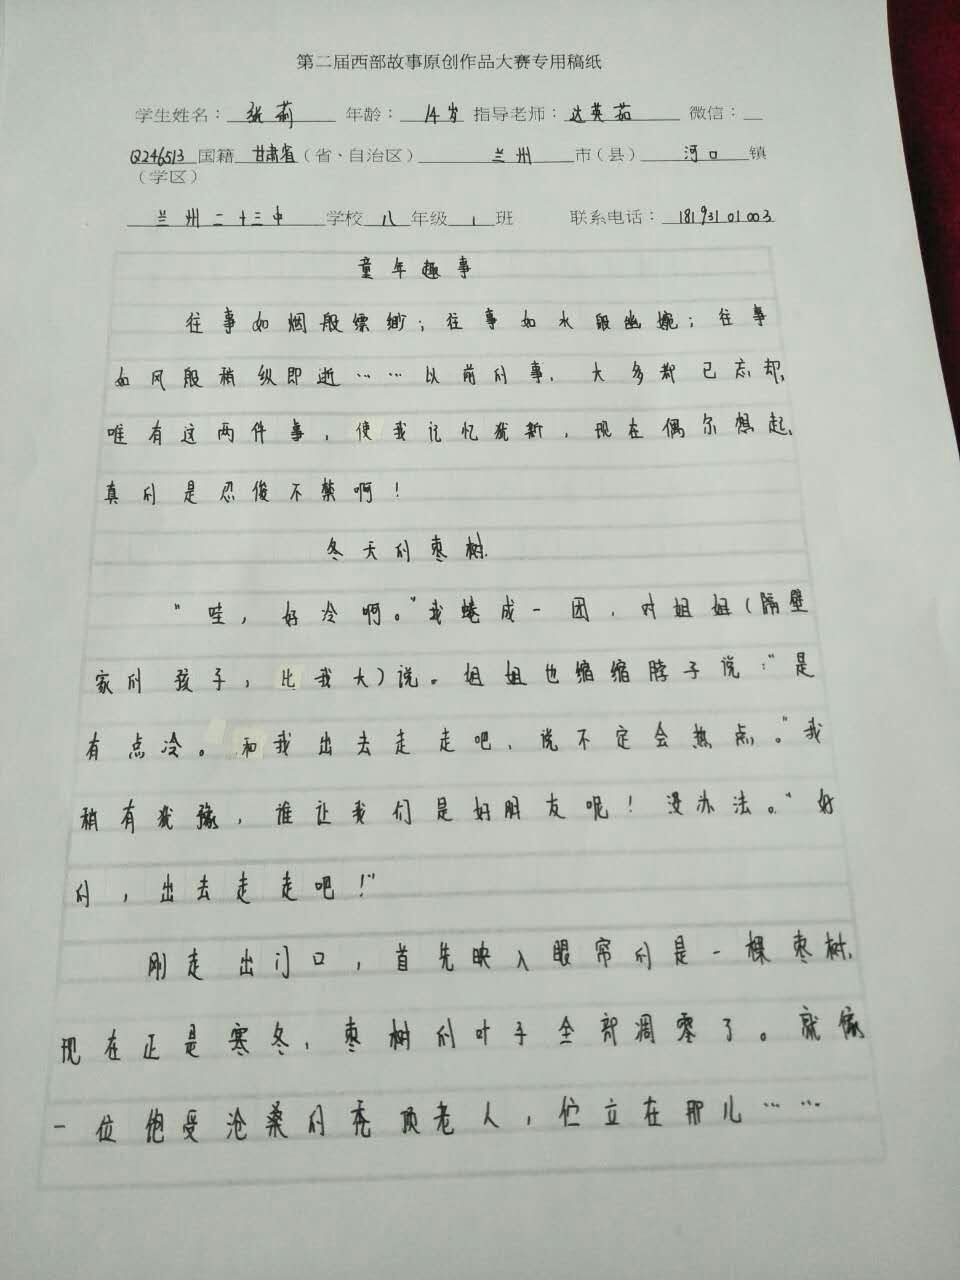 第二届西部故事原创作品大赛专用稿纸
学生姓名：张莉 年龄：14岁 指导老师：达英茹 微信：
Q246513 国籍 甘肃省（省、自治区） 兰州 市（县） 河口 镇
（学区）
兰州二十三中 学校 八 年级 1 班 联系电话：18193101003
童年趣事
往事如烟般缥缈；往事如水般幽婉；往事
如风般稍纵即逝……以前的事，大多都已忘却，
唯有这两件事，使我记忆犹新，现在偶尔想起，
真的是忍俊不禁啊！
冬天的枣树
“哇，好冷啊。”我蜷成一团，对姐姐（隔壁
家的孩子，比我大）说。姐姐也缩缩脖子说：“是
有点冷。和我出去走走吧，说不定会热点。”我
稍有犹豫，谁让我们是好朋友呢！没办法。“好
的，出去走走吧！”
刚走出门口，首先映入眼帘的是一棵枣树，
现在正是寒冬，枣树的叶子全部凋零了。就像
一位饱受沧桑的秃顶老人，伫立在那儿……